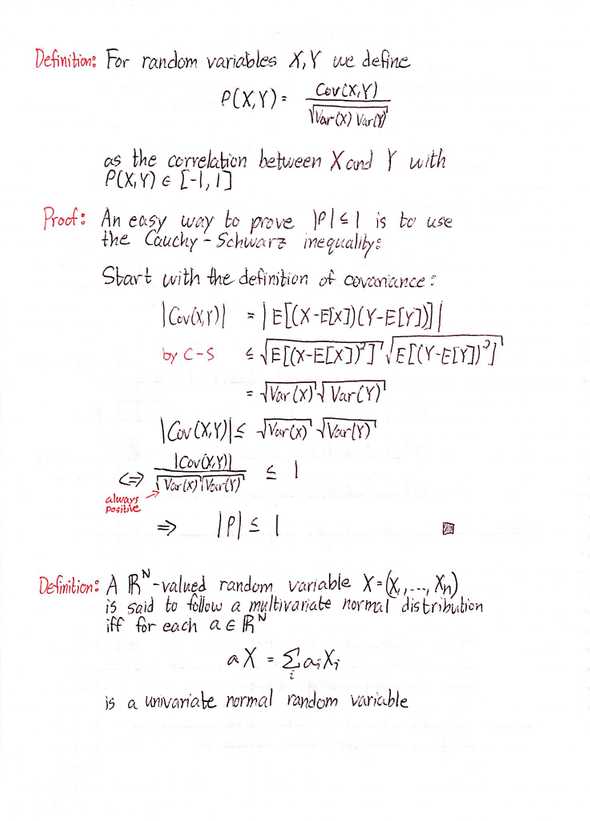 Definition: For random variables X,Y we define
ρ(X,Y) = Cov(X,Y) / √Var(X) Var(Y)
as the correlation between X and Y with
ρ(X,Y) ∈ [-1,1]
Proof: An easy way to prove |ρ| ≤ 1 is to use
the Cauchy-Schwarz inequality:
Start with the definition of covariance:
|Cov(X,Y)| = |E[(X-E[X])(Y-E[Y])]|
by C-S ≤ √E[(X-E[X])²] √E[(Y-E[Y])²]
= √Var(X) √Var(Y)
|Cov(X,Y)| ≤ √Var(X) √Var(Y)
⟺ |Cov(X,Y)| / √Var(X) √Var(Y) ≤ 1
always
positive
⇒ |ρ| ≤ 1
Definition: A ℝᴺ-valued random variable X=(X₁,...,Xₙ)
is said to follow a multivariate normal distribution
iff for each a ∈ ℝᴺ
aX = Σᵢ aᵢXᵢ
is a univariate normal random variable